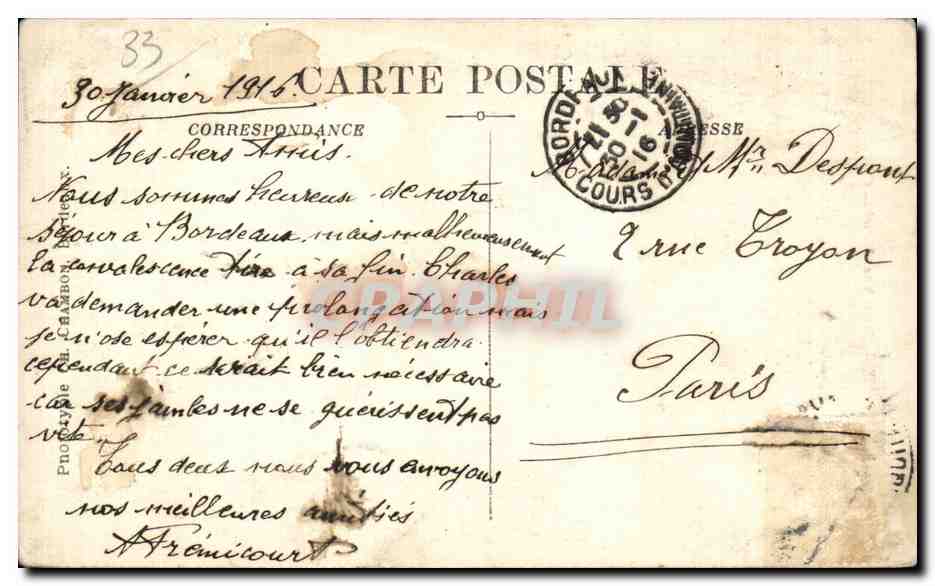 33
CARTE POSTALE
30 Janvier 1916.
CORRESPONDANCE
Mes chers Amis.
Nous sommes heureux de notre
séjour à Bordeaux mais malheureusement
la convalescence tire à sa fin. Charles
va demander une prolongation mais
je n'ose espérer qu'il l'obtiendra.
cependant ce serait bien nécessaire
car ses jambes ne se guérissent pas
vite.
Tous deux nous vous envoyons
nos meilleures amitiés
A Frémicourt
ADRESSE
Madame et Mr Desfront
2 rue Troyon
Paris
BORDEAUX
21 30 - 1
30 - 1 16
COURS
Phototypie CHAMBON, Bordeaux.
CPAPHIL